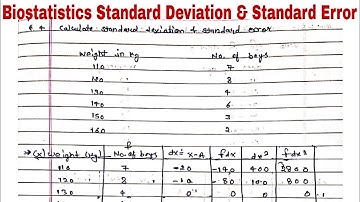 Biostatistics Standard Deviation & Standard Error
Calculate standard deviation & standard error
Weight in kg No. of boys
110 7
120 8
130 4
140 6
150 3
160 2
(x) weight (kg) No. of boys dx = x-A fdx dx² fdx²
110 7 -20 -140 400 2800
120 8 -10 -80 100 800
130 4 0 0 0 0